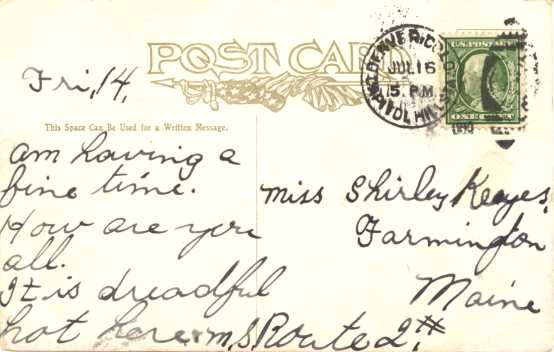 POST CARD
DENVER, COLO.
JUL 16
5. P.M.
CAPITOL HILL STA.
U.S. POSTAGE
ONE CENT
Fri, 14,
This Space Can Be Used for a Written Message.
am having a
fine time.
How are you
all.
It is dreadful
hot here. m.S.
Miss Shirley Keyes,
Farmington
Maine
Route 2,#